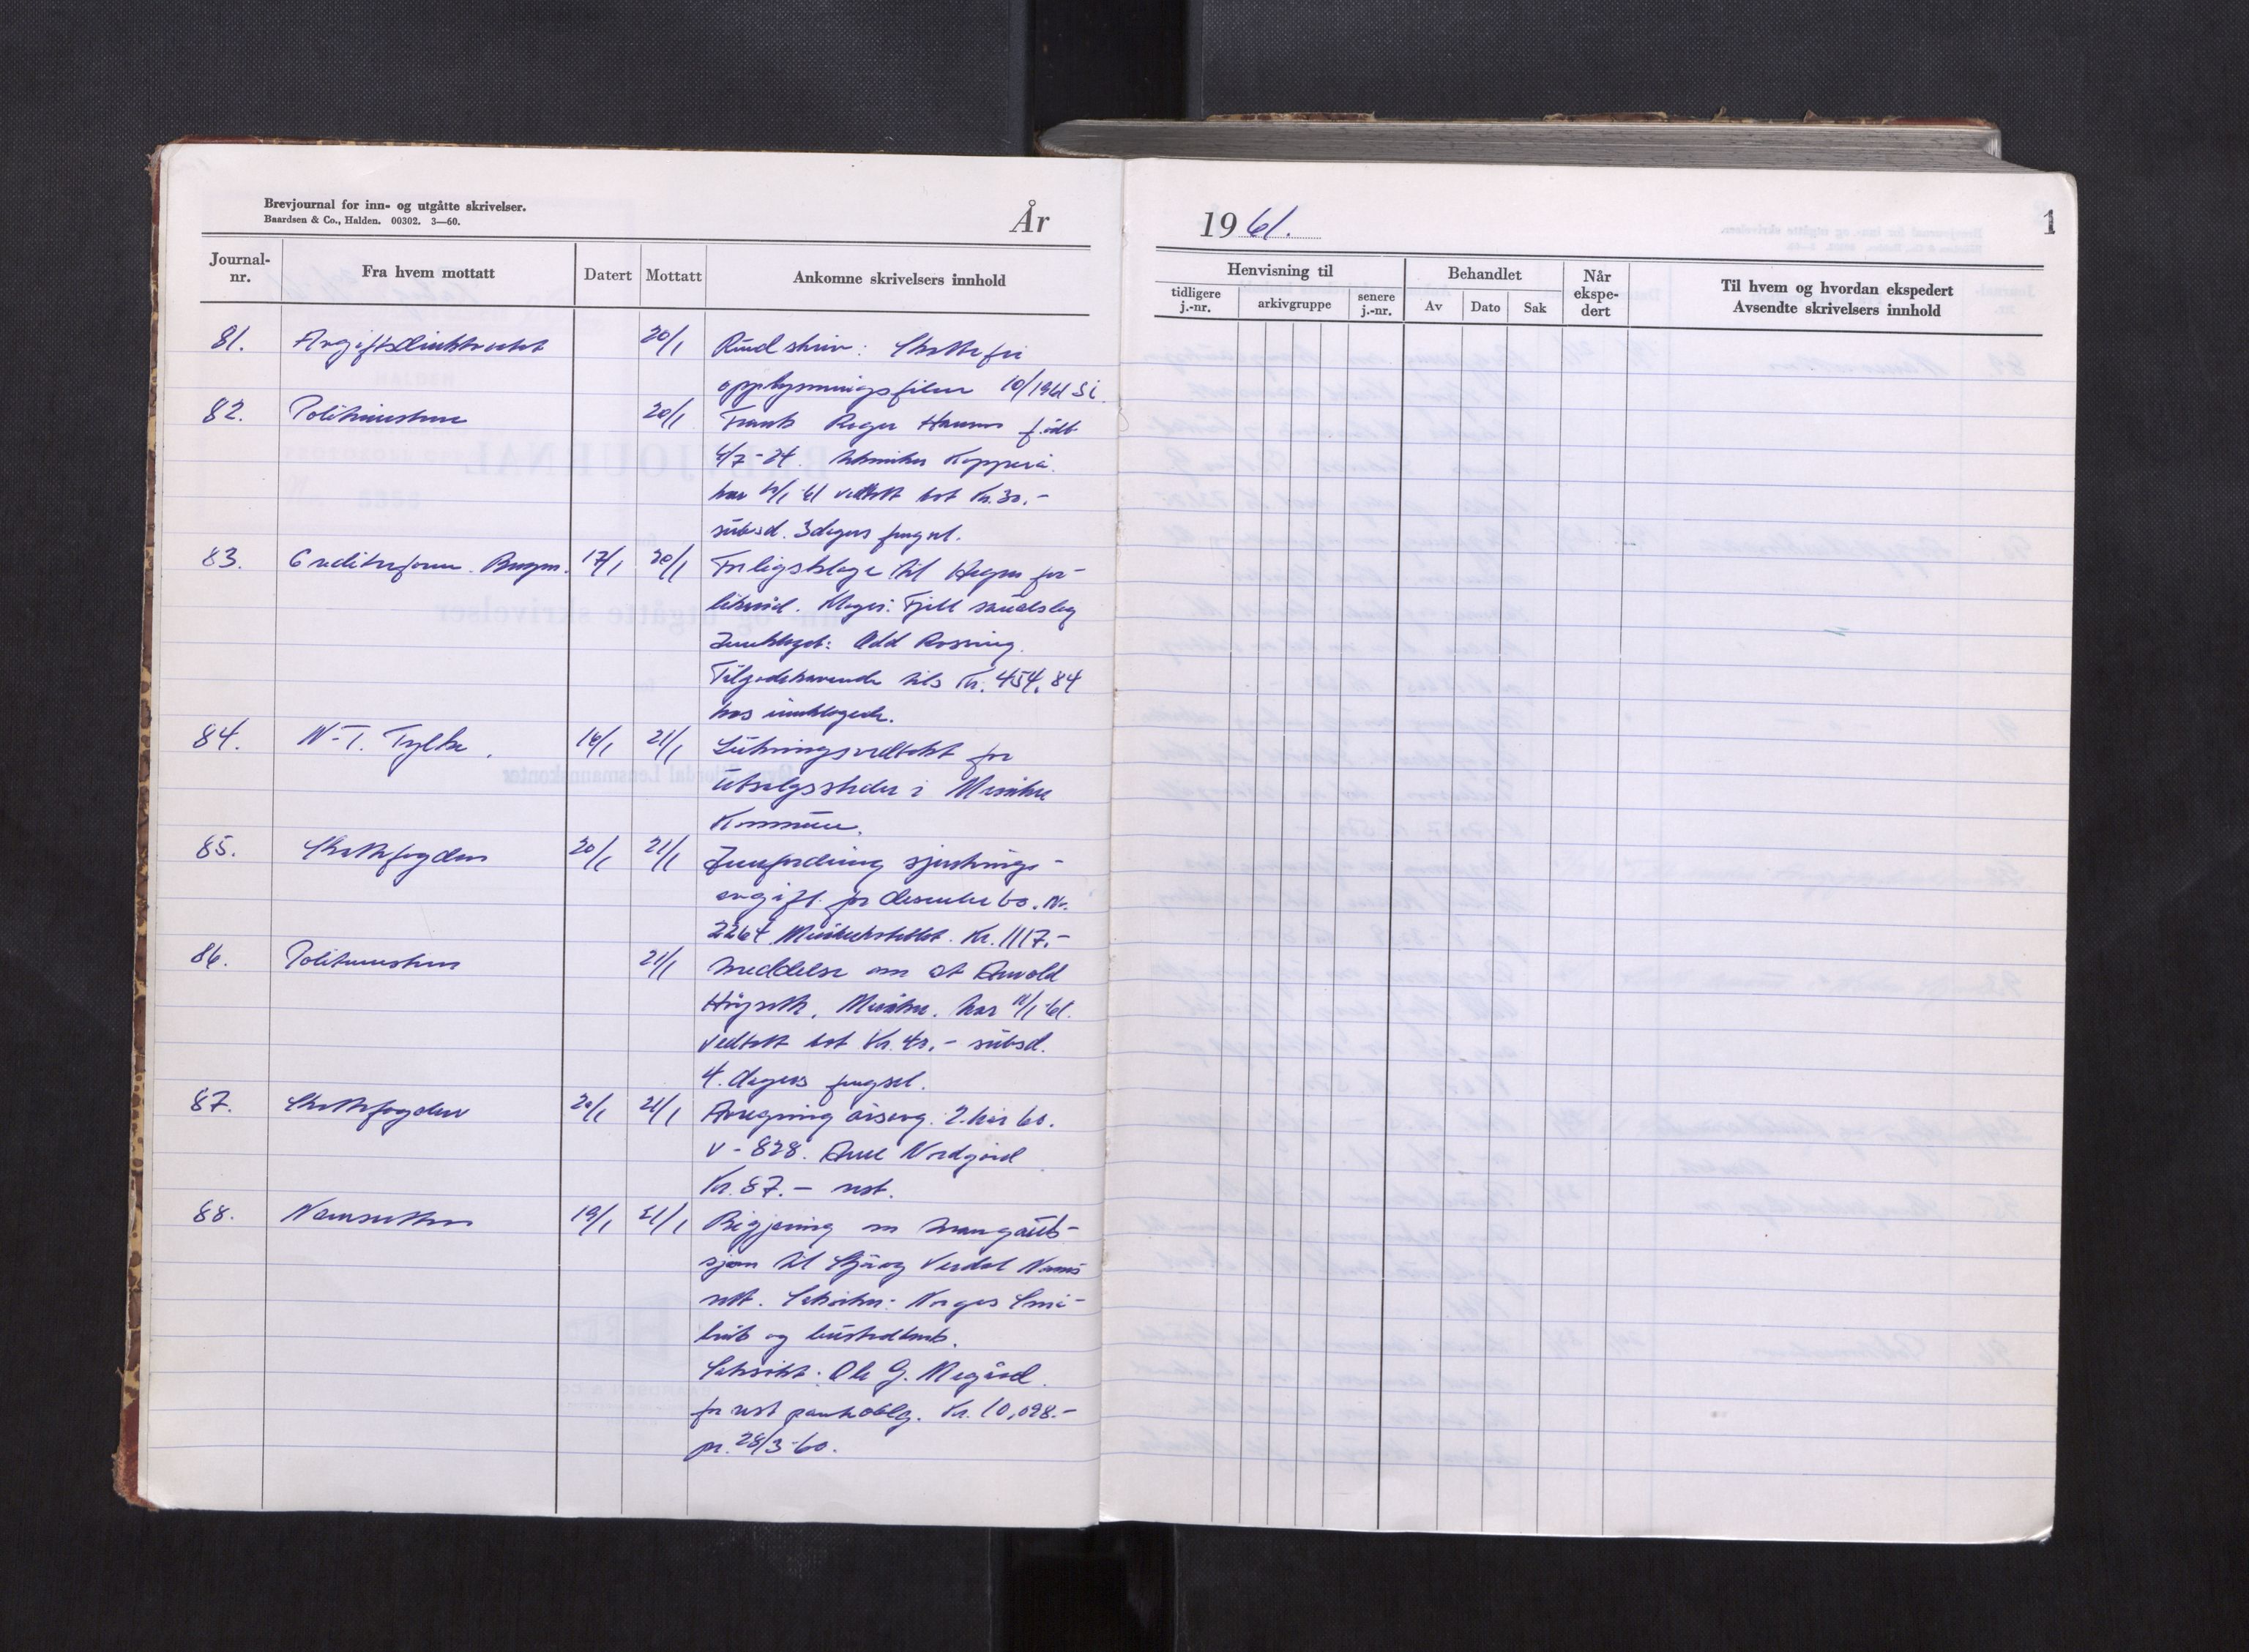 Brevjournal for inn- og utgåtte skrivelser.
Baardsen & Co., Halden. 00302. 3—60.
År
1961.
1
Journal-
nr.
Fra hvem mottatt
Datert
Mottatt
Ankomne skrivelsers innhold
Henvisning til
tidligere
j.-nr.
arkivgruppe
senere
j.-nr.
Behandlet
Av
Dato
Sak
Når
ekspe-
dert
Til hvem og hvordan ekspedert
Avsendte skrivelsers innhold
81. Avgiftsdirektoratet 20/1 Rundskriv: Skattefri
opplysningsfilm 10/1961 Si.
82. Politimesteren 20/1 Frank Roger Hansen født
4/7-24. tekniker Kopperå.
har 61 vedtatt bot Kr. 30.-
subsd. 3 dagers fengsel.
83. Creditreform. 17/1 20/1 Forliksklage til Hegra for-
liksråd. Klager: Fjell
Innklaget: Odd Rosning.
Tilgodehavende tils Kr. 454,84
hos innklagede.
84. N-T. Fylke. 16/1 21/1 Lukningsvedtekt for
utsalgssteder i Meråker
Kommune.
85. Skattefogden 20/1 21/1 Innfordring sjenkings-
avgift for desember 60. Nr.
2264 Meråkerhotellet. Kr. 1117.-
86. Politimesteren 21/1 Meddelse om at Arnold
Høyseth, Meråker. har 11/1-61.
vedtatt bot Kr. 40.- subsd.
4. dagers fengsel.
87. Skattefogden 20/1 21/1 Avregning årsavg. 2. kv 60.
V-828. Arne Nordgård
Kr. 87.- rest.
88. Namsretten 19/1 21/1 Begjæring om tvangsauk-
sjon til Stjør og Verdal Nams
rett. Saksøker: Norges Små-
bruk og bustadbank.
Saksøkt: Ole G. Megård.
for rest pantoblg. Kr. 10,098.-
pr. 28/3-60.